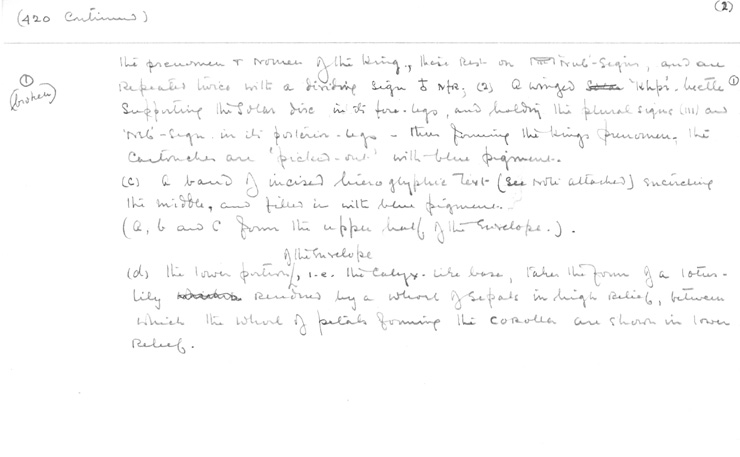 (420 Continued)
(2)
the prenomen & nomen of the King, these rest on 'Nub'-signs, and are
① (broken)
Repeated twice with a dividing sign nfr; (2) A winged 'Khpr'-beetle ①
Supporting the Solar disc in its fore-legs, and holding the plural signs (III) and
'Nb'-sign in its posterior-legs - thus forming the Kings prenomen. The
Cartouches are 'picked-out' with blue pigment.
(c) A band of incised hieroglyphic text (see Note attached) encircling
the middle, and filled in with blue pigment.
(a, b and c form the upper half of the Envelope.).
of the Envelope
(d) The lower portion, i.e. the Calyx-like base, takes the form of a lotus-
lily rendered by a whorl of sepals in high relief, between
which the whorl of petals forming the corolla are shown in lower
Relief.